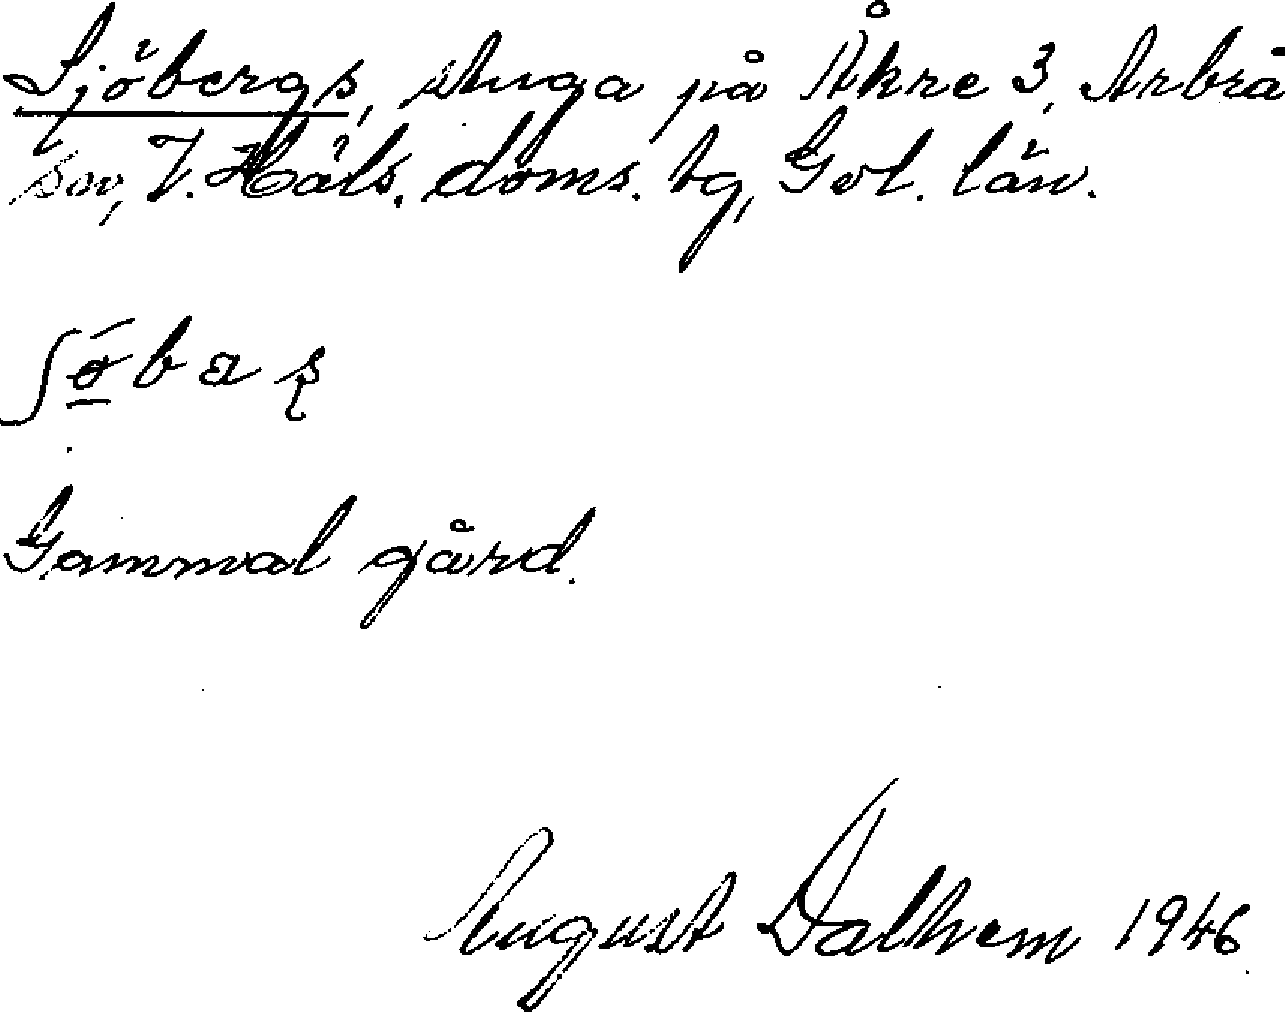 Sjöbergs, stuga på Åkre 3, Arbrå
sn, V. Häls. doms. tg, Gvl. län.
ʃö̱baʂ
Gammal gård.
August Dalhem 1946